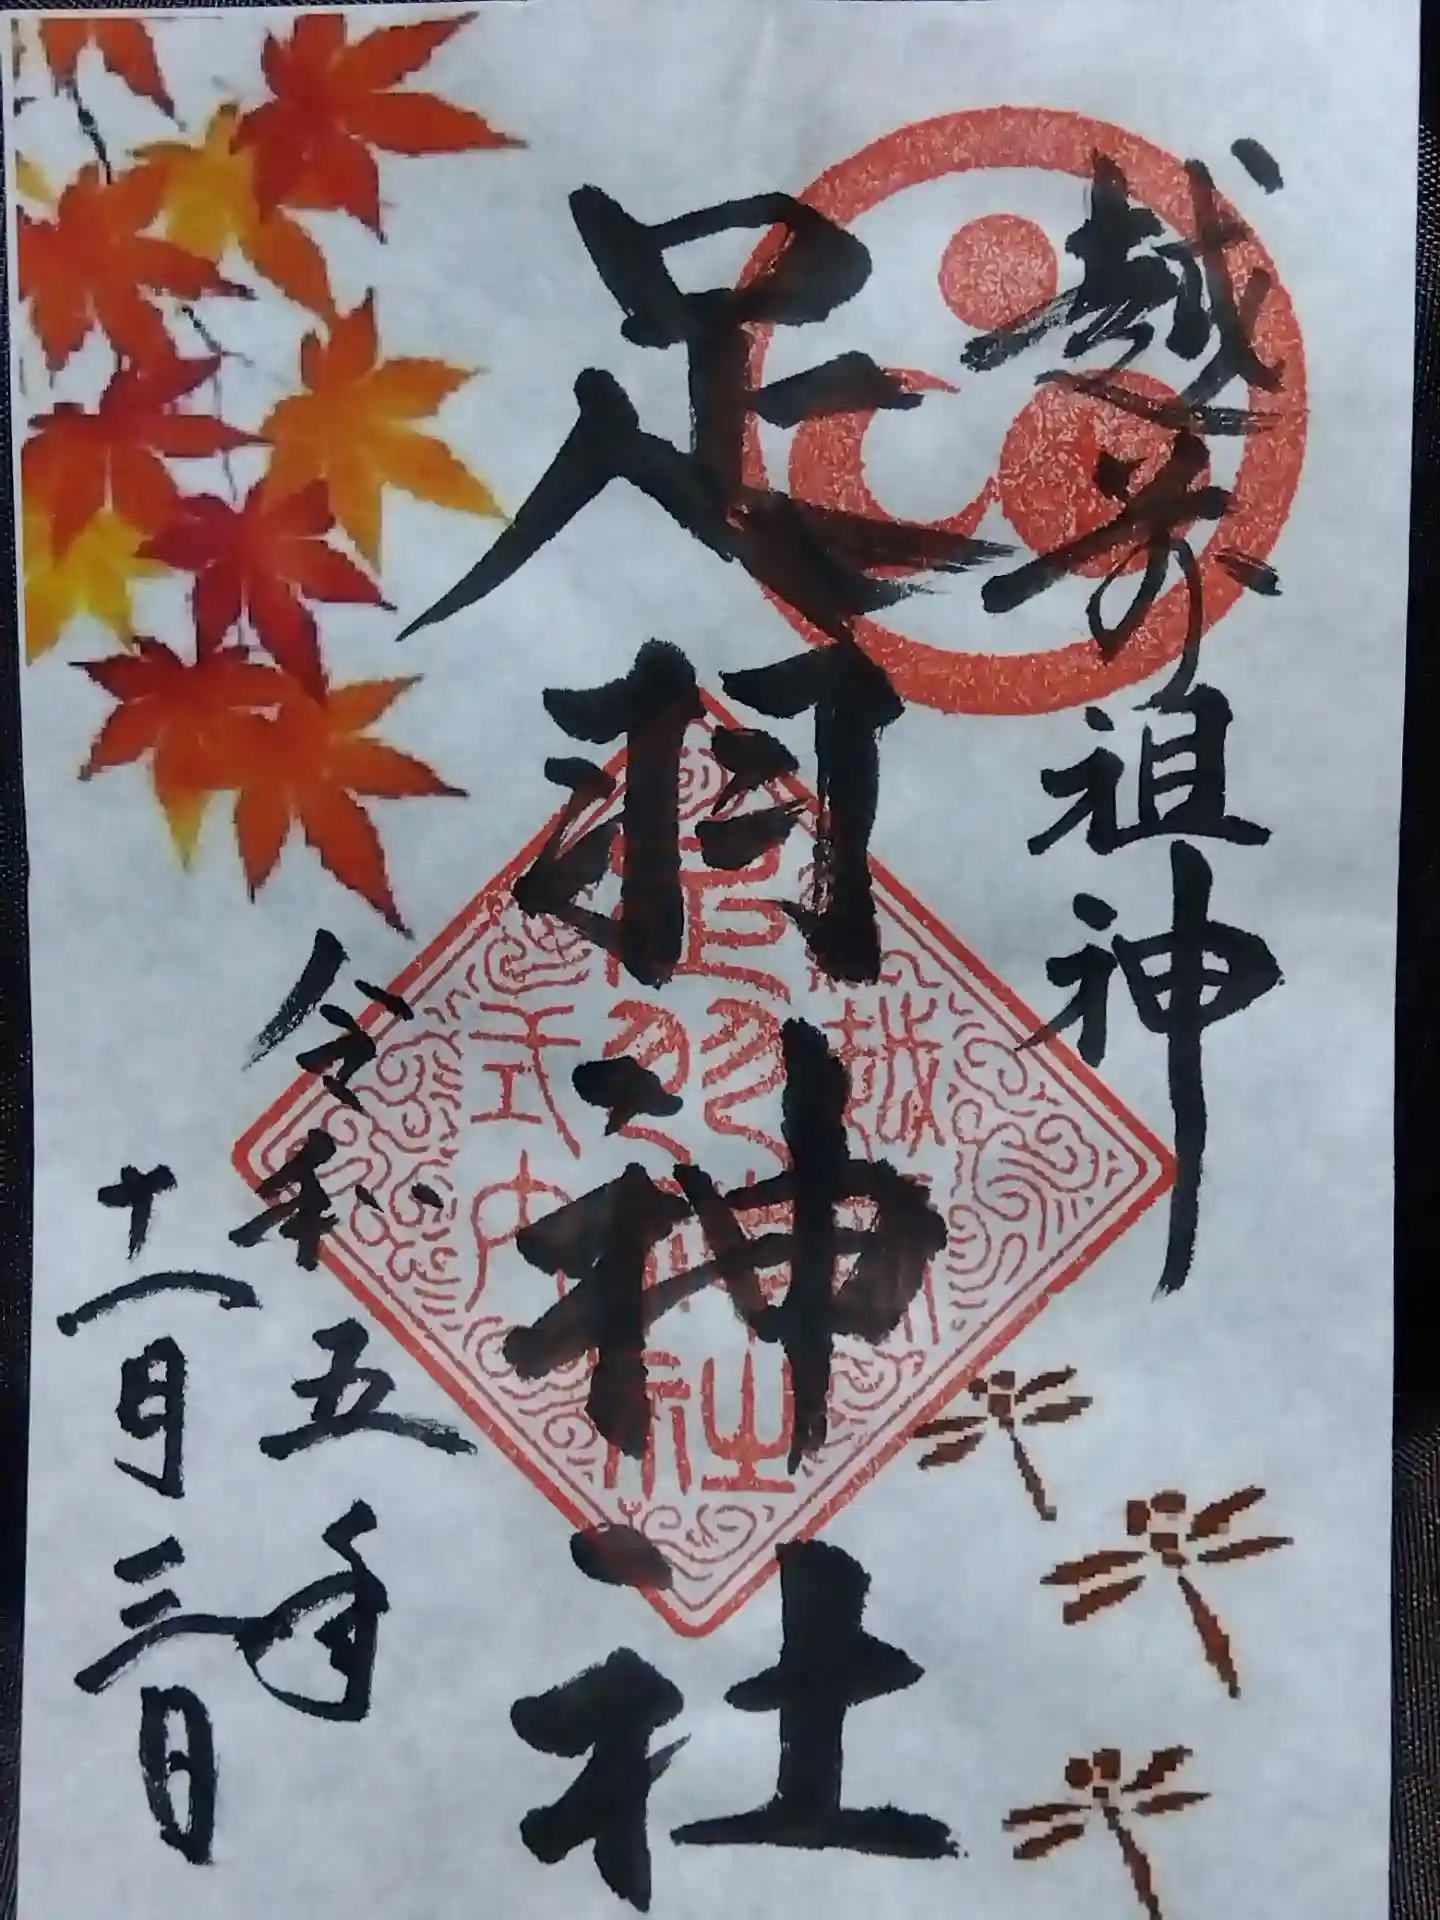 越前祖神
足羽神社
令和五年
十一月三日
足羽神社
式内